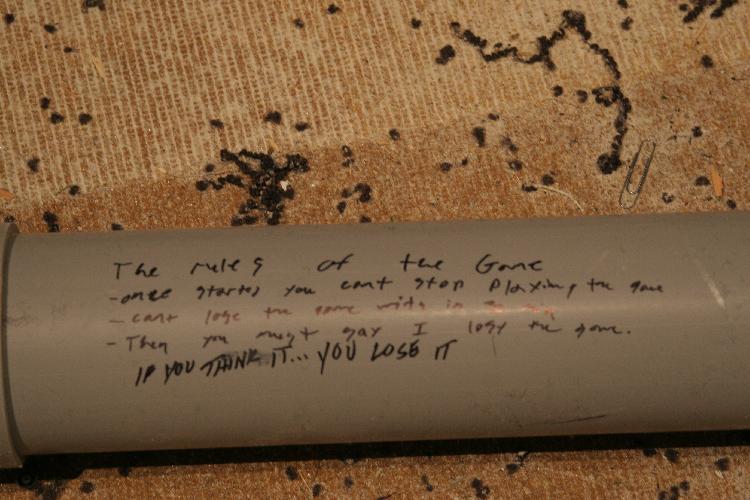 The rules of the Game
-once started you cant stop Playing the game
-cant lose the game with in
-Then you must say I lost the game.
IF YOU THINK IT... YOU LOSE IT